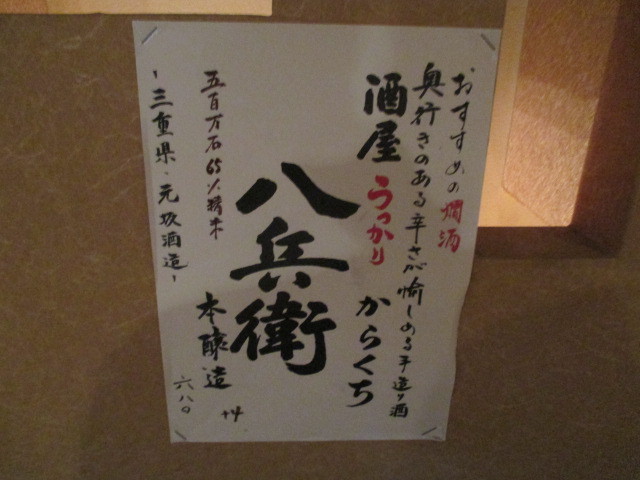 おすすめの燗酒
奥行きのある辛さが愉しめる手造り酒
酒屋うっかり からくち
八兵衛
本醸造
+4
五百万石65%精米
六八〇
-三重県・元坂酒造-